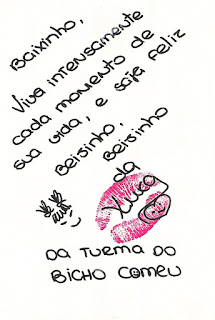 Baixinho,
Viva intensamente
cada momento de
sua vida, e seja feliz
Beijinho, Beijinho
da
Xuxa
DA TURMA DO
BICHO COMEU